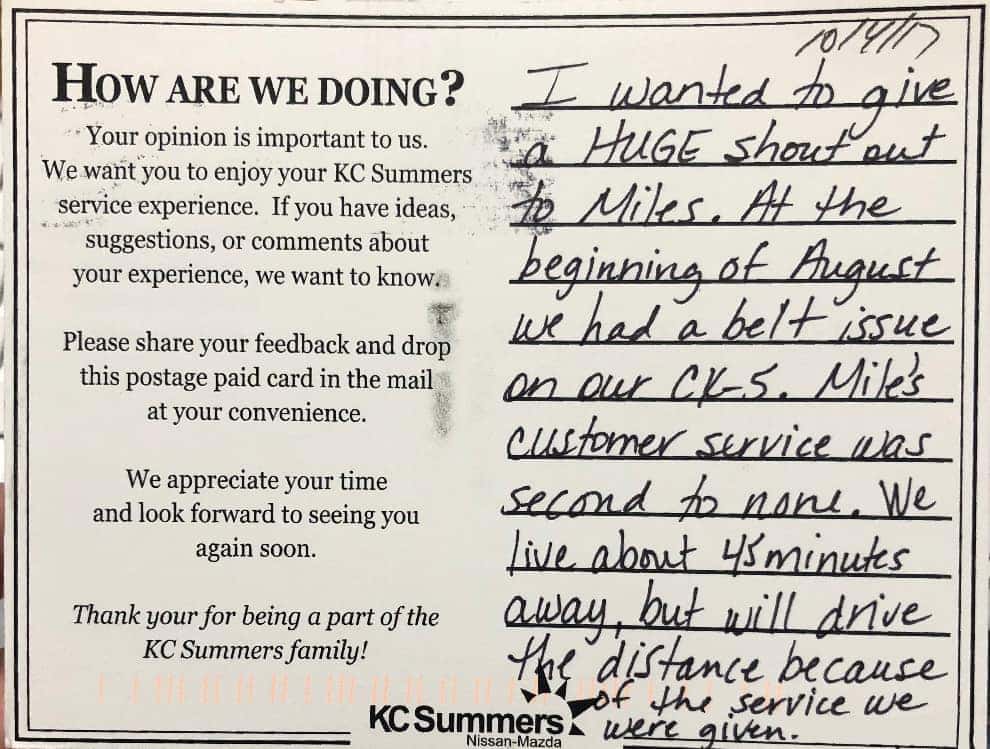 HOW ARE WE DOING?
Your opinion is important to us.
We want you to enjoy your KC Summers
service experience. If you have ideas,
suggestions, or comments about
your experience, we want to know.
Please share your feedback and drop
this postage paid card in the mail
at your convenience.
We appreciate your time
and look forward to seeing you
again soon.
Thank your for being a part of the
KC Summers family!
KC Summers
Nissan-Mazda
10/4/17
I wanted to give
a HUGE shout out
to Miles. At the
beginning of August
we had a belt issue
on our CX-5. Mile's
customer service was
second to none. We
live about 45 minutes
away, but will drive
the distance because
of the service we
were given.